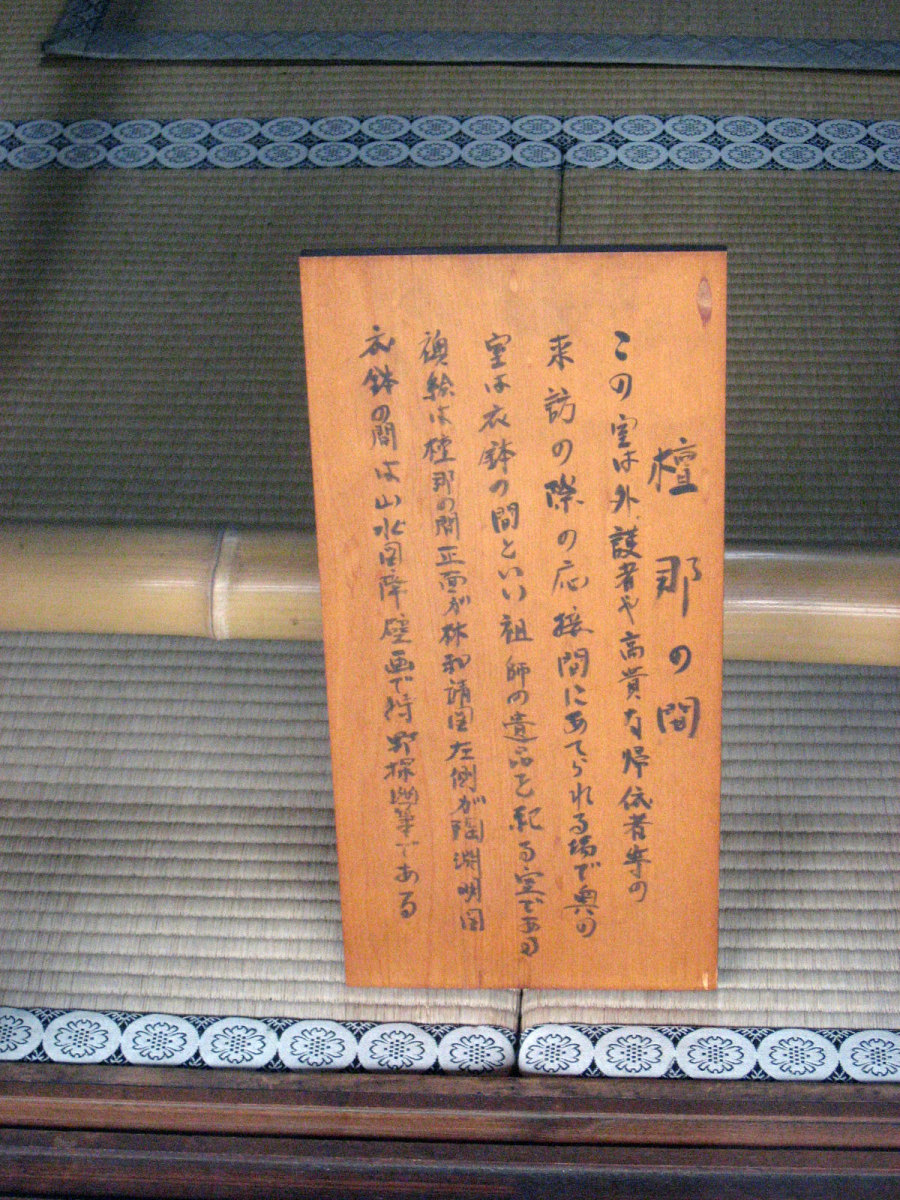 檀那の間
この室は外護者や高貴な帰依者等の
来訪の際の応接間にあてられる場で奥の
室は衣鉢の間といい祖師の遺品を祀る室である
襖絵は檀那の間正面が林和靖図左側が陶渊明図
衣鉢の間は山水図障壁画で狩野探幽筆である